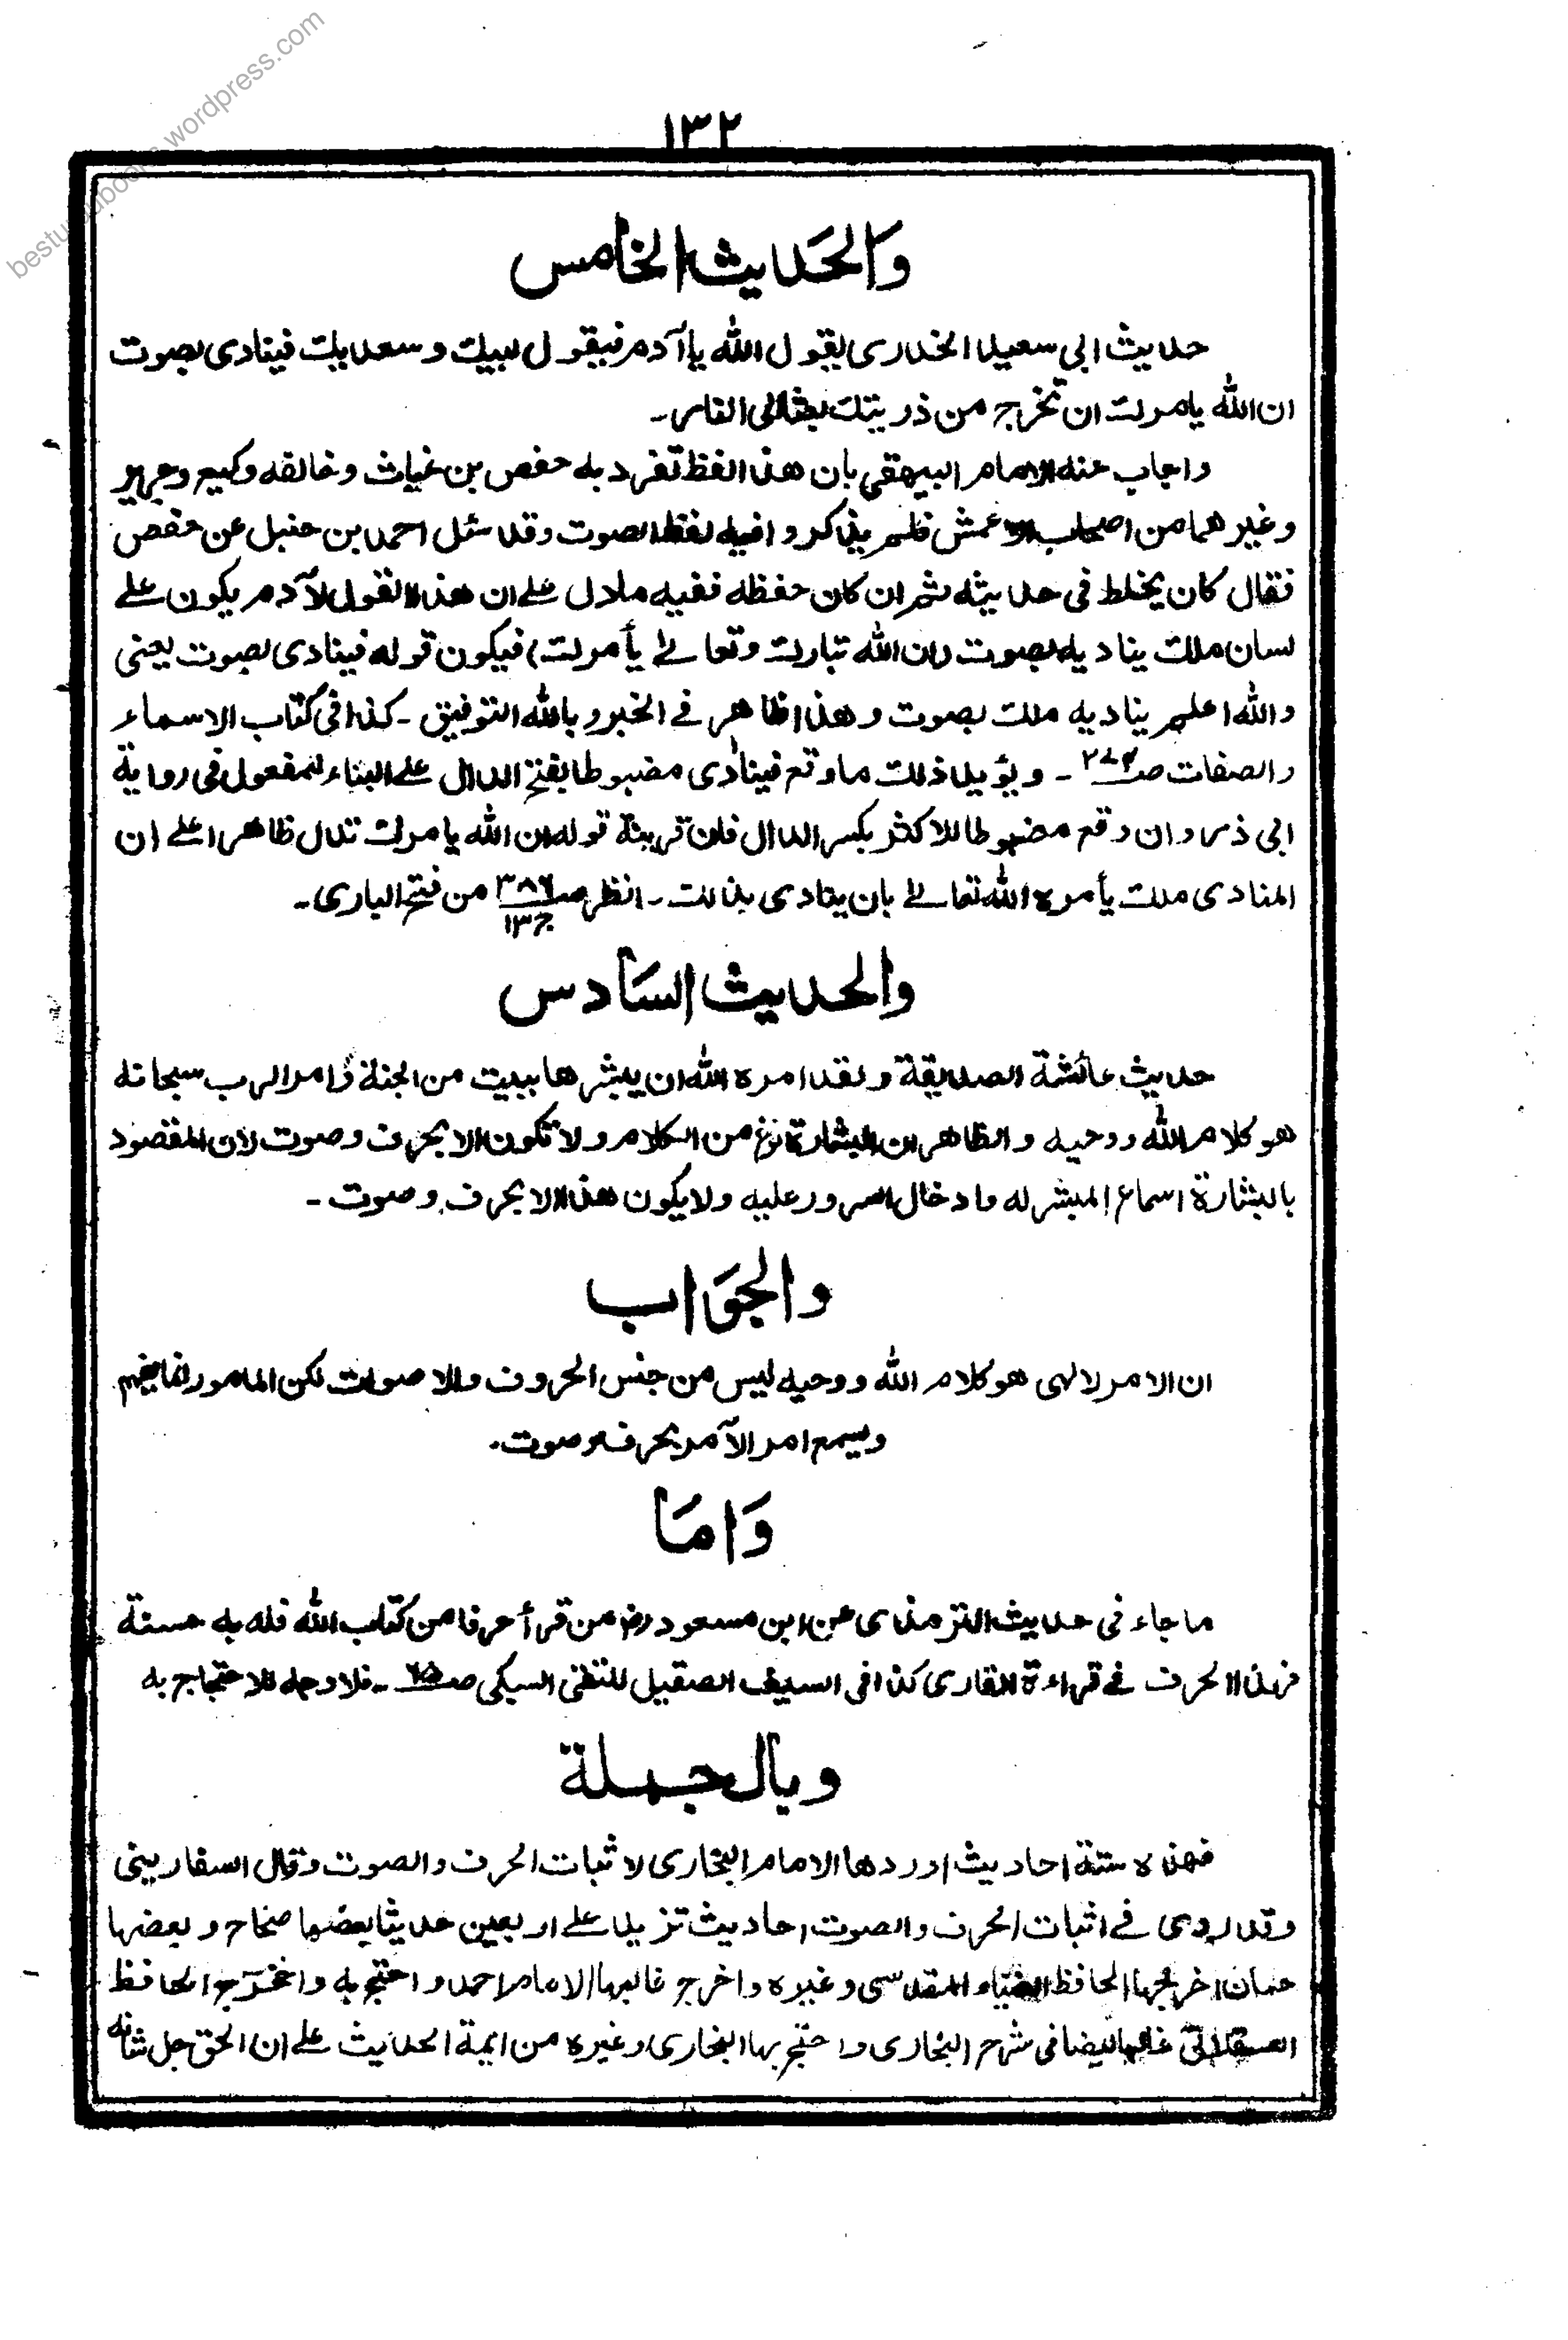 bestu
books.wordpress.com
١٣٢
وَالحَديث الخامس
حديث ابى سعيد الخدرى يقول الله يا آدم فيقول لبيك وسعديك فينادى بصوت
ان الله يامرك ان تخرج من ذريتك بعثا الى النار۔
واجاب عنه الامام البيهقى بان هذا الفظ تفرد به حفص بن غياث وخالفه وكيع وجرير
وغيرهما من اصحاب الاعمش فلم يذكروا فيه لفظ الصوت وقد سئل احمد بن حنبل عن حفص
فقال كان يخلط فى حديثه ثم ان كان حفظه ففيه ما دل على ان هذا القول لآدم يكون على
لسان ملك يناديه بصوت (ان الله تبارك وتعالى يأمرك) فيكون قوله فينادى بصوت يعنى
والله اعلم يناديه ملك بصوت وهذا ظاهر فى الخبر وبالله التوفيق۔ كذا فى كتاب الاسماء
والصفات ص۔ ويؤيد ذلك ما وقع فينادى مضبوطا بفتح الدال على البناء للمفعول فى رواية
ابى ذر وان وقع مضبوطا للاكثر بكسر الدال فان قرينة قوله ان الله يامرك تدل ظاهرا على ان
المنادى ملك يأمره الله تعالى بان ينادى بذلك۔ انظر ص٣٨٦ ج١٣ من فتح البارى۔
والحديث السَادس
حديث عائشة الصديقة ولقد امره الله ان يبشرها ببيت من الجنة وامر الرب سبحانه
هو كلام الله ووحيه والظاهر ان البشارة نوع من الكلام ولا تكون الا بحرف وصوت لان المقصود
بالبشارة اسماع المبشر له وادخال السرور عليه ولا يكون هذا الا بحرف وصوت۔
والجوَاب
ان الامر لالهى هو كلام الله ووحيه ليس من جنس الحروف والاصوات لكن المامور انما يفهم
ويسمع امر الآمر بحرف وصوت۔
وَامَا
ما جاء فى حديث الترمذى عن ابن مسعود رض من قرأ حرفا من كتاب الله فله به حسنة
فهذا الحرف فى قراءة القارى كذا فى السيف الصقيل للتقى السبكى ص۔ فلا وجه للاحتجاج به
وبال جملة
فهذه ستة احاديث اوردها الامام البخارى لاثبات الحرف والصوت وقال السفارينى
وقد روى فى اثبات الحرف والصوت احاديث تزيد على اربعين حديثا بعضها صحاح وبعضها
حسان اخرجها الحافظ الضياء المقدسى وغيره واخرج غالبها الامام احمد واحتج به واخرج الحافظ
العسقلانى غالبها ايضا فى شرح البخارى واحتج بها البخارى وغيره من ايمة الحديث على ان الحق جل شانه